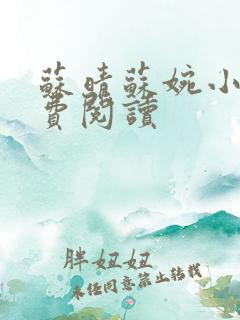 蘇晴蘇婉小
費閱讀
胖妞妞
未經同意禁止轉載